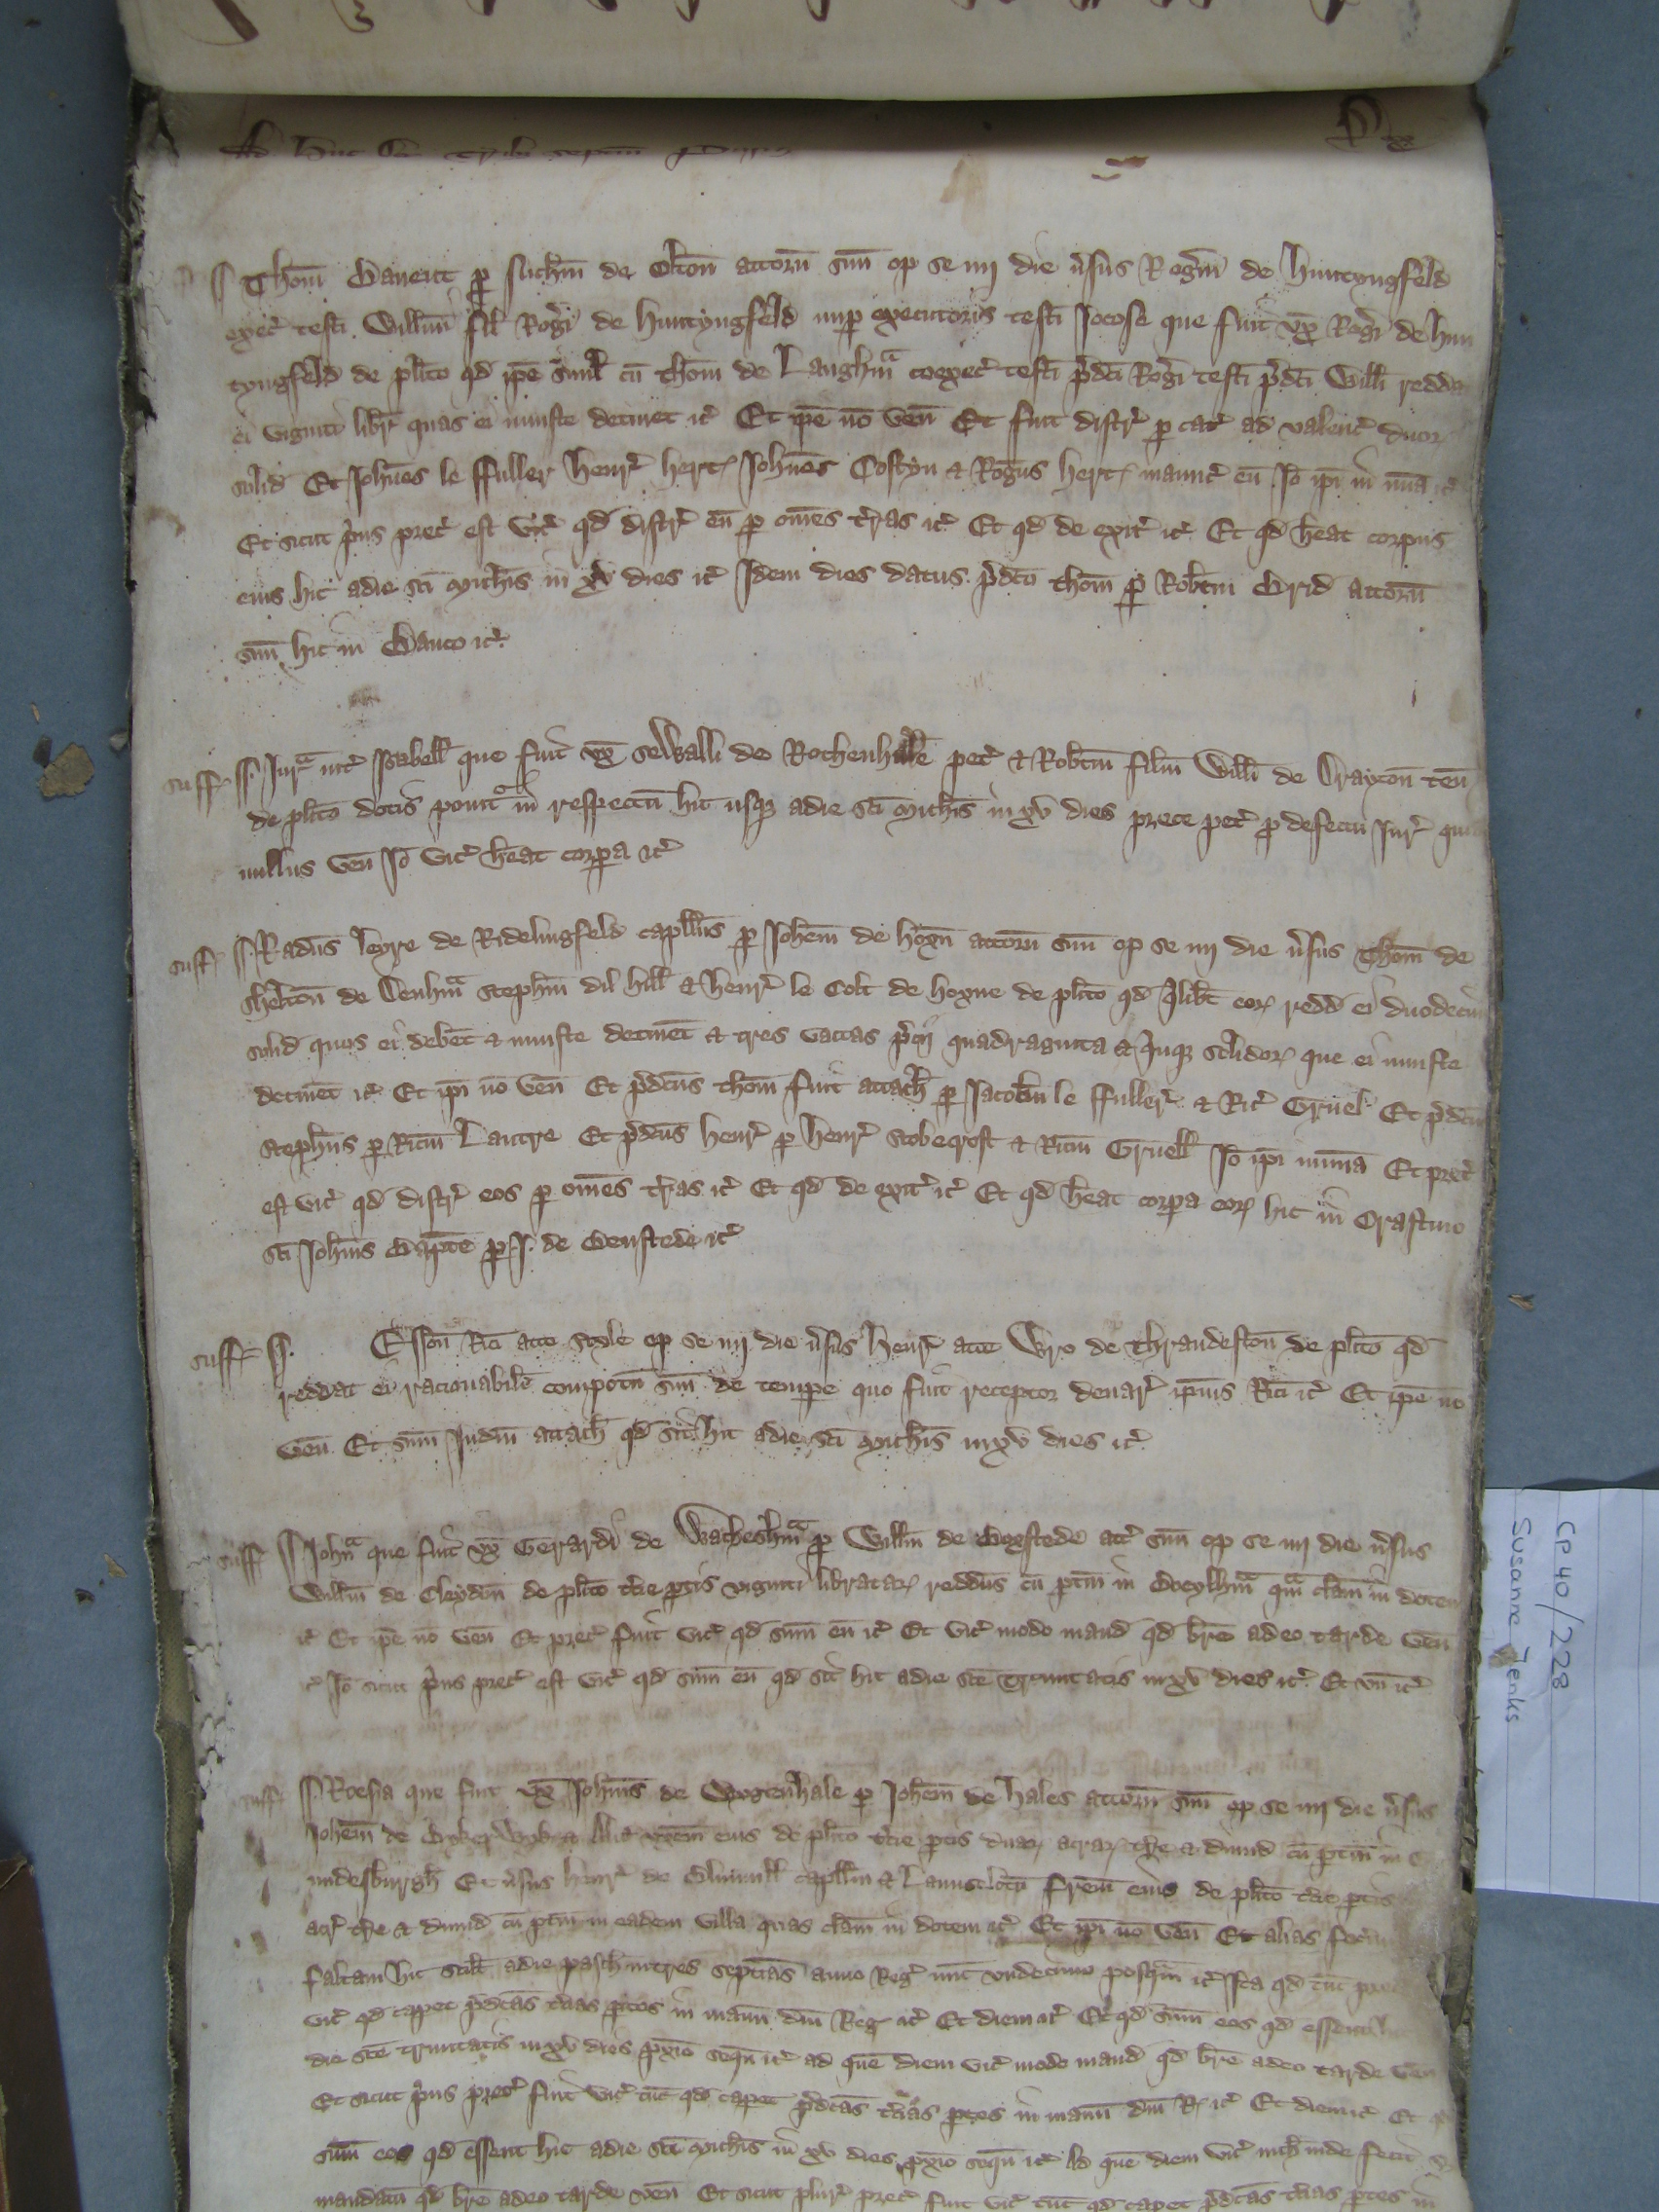 Thom̄ Bauent p̱ Nich̄m de Elton̄ attorn̄ suū op se iiij die v̓sus Rogm̄ de Huntyngfeld
exec̓ testī Will̄m fil̄ Rogi de Huntyngfeld nup̱ executoris testī Iocose que fuit vx̄ Rogi de Hun
tyngfeld de pl̄ito qd̄ ip̄e simul cū Thom̄ de Langhm̄ coexec̓ testī p̓dc̄i Rogi testī p̓dc̄i Will̄i redda
ei viginti libr̓ quas ei iniuste detinet ⁊c̓ Et ip̄e nō ven̄ Et fuit distr̓ p̱ cat̓ ad valenc̓ duoꝝ
solid̄ Et Ioh̄nes le ffuller Henr̓ Hert Ioh̄nes Costyn ⁊ Rog̓us Hert manuc̓ eū Iō ip̄i in mīa ⁊c̓
Et sicut p̓us prec̓ est vic̓ qd̄ distr̓ eū p̱ om̄es t̓ras ⁊c̓ Et qd̄ de exit̓ ⁊c̓ Et qd̄ h̄eat corpus
eius hic a die sc̄i Mich̄is in xv dies ⁊c̓ Idem dies datus p̓dc̄o Thom̄ p̱ Rob̄tm Brid attorn̄
suū hic in Banco ⁊c̓
Suff̓ Iur̓ int̓ Isabell̄ que fuit vx̄ Sewalli de Rothenhalle pet̓ ⁊ Rob̄tm filiū Will̄i de Drayton̄ ten̄
de pl̄ito dotis ponit̓ in respectū hic usqꝫ a die sc̄i Mich̄is in xv dies prece pet̓ p̱ defectu Iur̓ quia
nullus ven̄ Iō vic̓ h̄eat corpora ⁊c̓
Suff̓ Rad̄us Leyre de Ridelingfeld capll̄us p̱ Ioh̄em de Hoxn̄ attorn̄ suū op se iiij die v̓sus Thom̄ de
Shelton̄ de Denhm̄ Steph̄m dil Hill̄ ⁊ Henr̓ le Colt de Hoxne de pl̄ito qd̄ q̓libt̄ eoꝝ redd̄ ei duodecim
solid̄ quos ei debet ⁊ iniuste detinet ⁊ tres vaccas p̓cij quadraginta ⁊ q̓nqꝫ solidoꝝ que ei iniuste
detinet ⁊c̓ Et ip̄i nō ven̄ Et p̓dc̄us Thom̄ fuit attach̄ p̱ Iacob̄m le ffuller̓ ⁊ Ric̓ Gruel Et p̓dc̄us
Steph̄us p̱ Ric̄m Lautre Et p̓dc̄us Henr̓ p̱ Henr̓ Stobcroft ⁊ Ric̄m Gruell̄ Iō ip̄i in mīa Et prec̓
est vic̓ qd̄ distr̓ eos p̱ om̄es t̓ras ⁊c̓ Et qd̄ de exit̓ ⁊c̓ Et qd̄ h̄eat corpora eoꝝ hic in Crastino
sc̄i Ioh̄nis Bapt̄e p̱ I. de Benstede ⁊c̓
Suff̓ Esson̄ Ric̄i atte Style op se iiij die v̓sus Henr̓ atte Wro de Thrandeston̄ de pl̄ito qd̄
reddat ei racionabilē compotū suū de temp̱e quo fuit receptor denar̓ ip̄ius Ric̄i ⁊c̓ Et ip̄e nō
ven̄ Et sum̄ Iudm̄ attach̄ qd̄ sit hic a die sc̄i Mich̄is in xv dies ⁊c̓
Suff̓ Ioh̄na que fuit vx̄ Gerardi de Wachesh̄m p̱ Will̄m de Boxstede att̓ suū op se iiij die v̓sus
Will̄m de Cleydon̄ de pl̄ito t̓cie p̱tis viginti librataꝝ reddit̓ cū p̱tin̄ in qm̄ clam̄ in dotem
⁊c̓ Et ip̄e nō ven̄ Et prec̓ fuit vic̓ qd̄ sum̄ eū ⁊c̓ Et vic̓ modo mand̄ qd̄ br̄e adeo tarde ven̄
⁊c̓ Iō sicut p̓us prec̓ est vic̓ qd̄ sum̄ eū qd̄ sit hic a die sc̄e Trinitatis in xv dies ⁊c̓ Et vn̄ ⁊c̓
Suff̓ Roesia que fuit vx̄ Ioh̄nis de p̱ Ioh̄em de Hales attorn̄ suū op se iiij die v̓sus
Ioh̄em de ⁊ vxorem eius de pl̄ito t̓cie p̱tis duaꝝ acraꝝ t̓re ⁊ dimid̄ cū p̱tin̄ in
Et v̓sus Henr̓ de capll̄m ⁊ fr̄em eius de pl̄ito t̓cie p̱tis
acr̓ t̓re ⁊ dimid̄ cū p̱tin̄ in eadem villa quas clam̄ in dotem ⁊c̓ Et ip̄i nō ven̄ Et alias fec̓unt
faltam hic scil̄t a die pasch̄ in tres septi̓as anno Reg̓ nūc vndecimo postqm̄ ⁊c̓ Ita qd̄ tūc prec̓
vic̓ qd̄ capet p̓dc̄as t̓cias p̱tes in manū dn̄i Reg̓ ⁊c̓ Et diem ⁊c̓ Et qd̄ sum̄ eos qd̄ essent hic
die sc̄e Trinitatis in xv dies p̱xīo seqū ⁊c̓ ad quē diem vic̓ modo mand̄ qd̄ br̄e adeo tarde ven̄
Et sicut p̓us prec̓ fuit vic̓ tūc qd̄ capet p̓dc̄as t̓cias p̱tes in manū dn̄i R̓ ⁊c̓ Et diem ⁊c̓ Et qd̄
sum̄ eos qd̄ essent hic a die sc̄i Mich̄is in xv dies p̱xīo seqū ⁊c̓ Ad quē diem vic̓ nich̄ inde fecit
mandau̓ qd̄ br̄e adeo tarde ven̄ Et sicut plur̓ prec̓ fuit vic̓ tūc qd̄ capet p̓dc̄as t̓cias p̱tes in
CP 40/228
Susanne Jenks